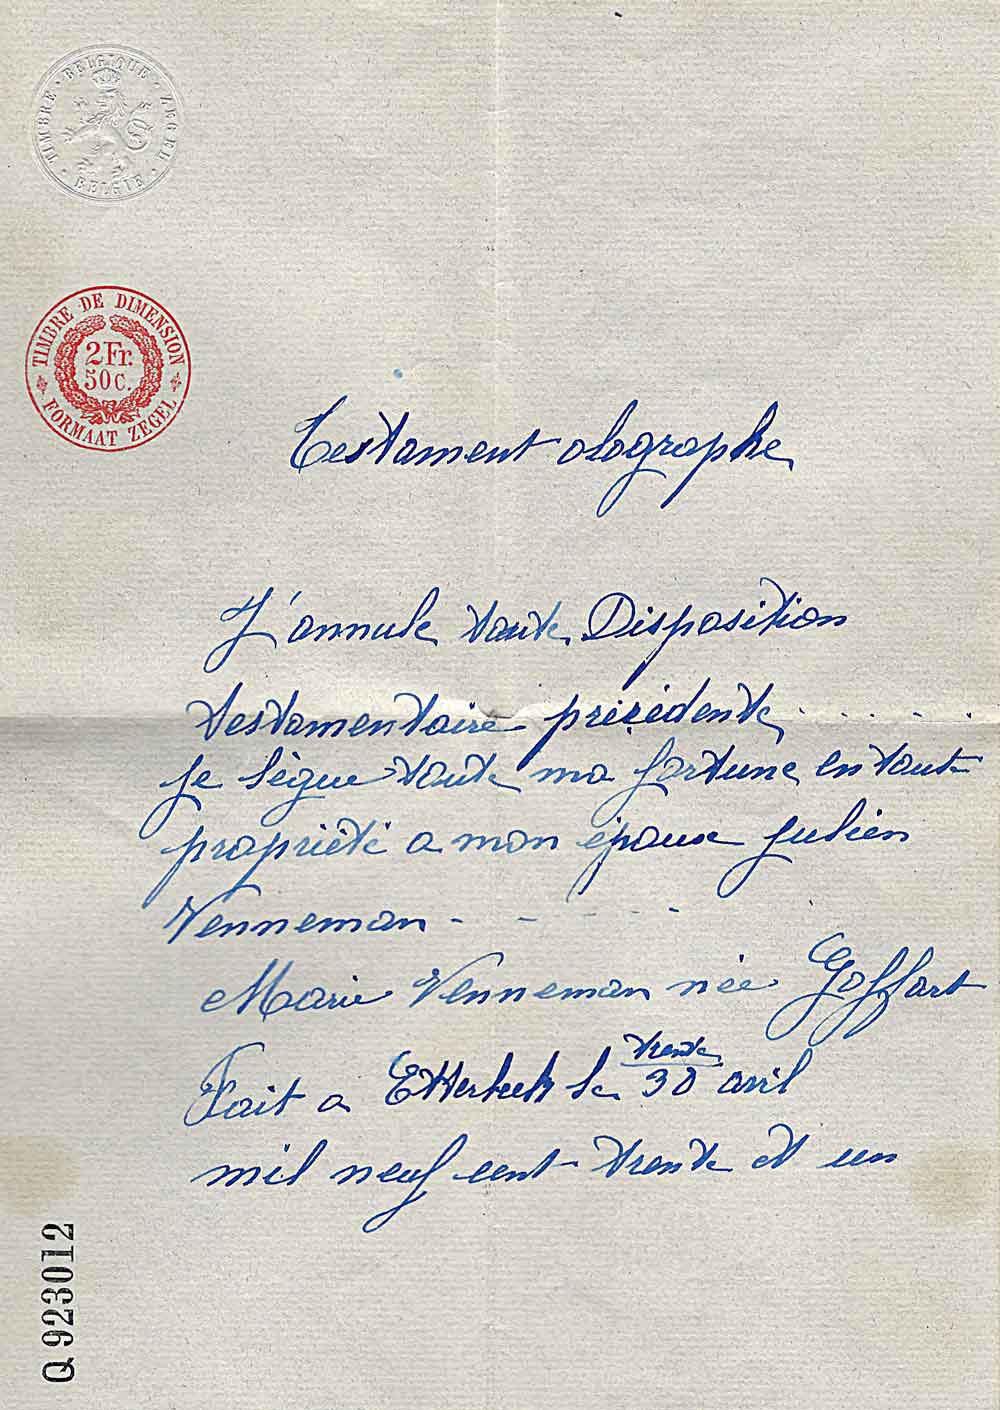 TIMBRE · BELGIQUE · ZEGEL · BELGIË
TIMBRE DE DIMENSION
2 Fr.
50 C.
FORMAAT ZEGEL
Testament olographe
J'annule toute Disposition
testamentaire précédente . . . . .
je lègue toute ma fortune en toute
propriété a mon époux Julien
Venneman - - - - - -
Marie Venneman née Goffart
trente
Fait a Etterbeek le 30 avril
mil neuf cent trente et un
Q 923012